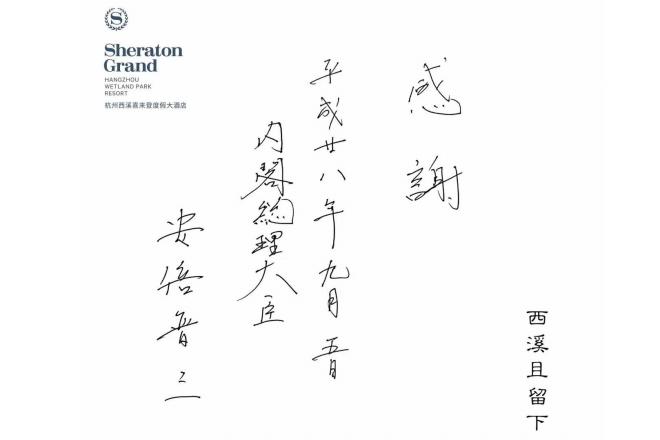 Sheraton
Grand
HANGZHOU
WETLAND PARK
RESORT
杭州西溪喜来登度假大酒店
感謝
平成廿八年九月五日
内閣総理大臣
安倍晋三
西溪且留下